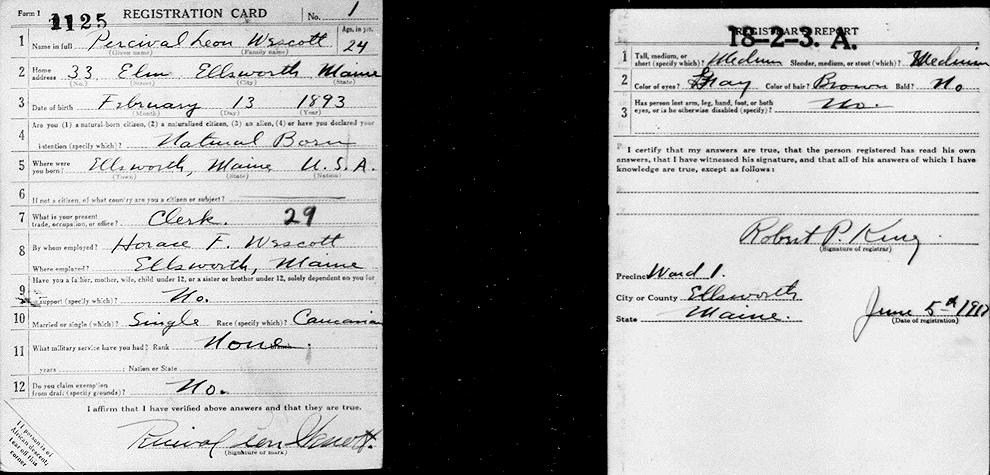 Form 1 1125 REGISTRATION CARD No. 1
1 Name in full Percival Leon Wescott Age, in yrs. 24
(Given name) (Family name)
2 Home address 33 Elm Ellsworth Maine
(No.) (Street) (City) (State)
3 Date of birth February 13 1893
(Month) (Day) (Year)
4 Are you (1) a natural-born citizen, (2) a naturalized citizen, (3) an alien, (4) or have you declared your
intention (specify which)? Natural Born
5 Where were you born? Ellsworth, Maine, U.S.A.
(Town) (State) (Nation)
6 If not a citizen, of what country are you a citizen or subject?
7 What is your present trade, occupation, or office? Clerk. 29
8 By whom employed? Horace F. Wescott
Where employed? Ellsworth, Maine
9 Have you a father, mother, wife, child under 12, or a sister or brother under 12, solely dependent on you for
support (specify which)? No.
10 Married or single (which)? Single Race (specify which)? Caucasian
11 What military service have you had? Rank None
years ; Nation or State
12 Do you claim exemption from draft (specify grounds)? No.
I affirm that I have verified above answers and that they are true.
Percival Leon Wescott.
(Signature or mark)
If person is of
African descent,
tear off this
corner
REGISTRAR'S REPORT
18-2-3. A.
1 Tall, medium, or short (specify which)? Medium Slender, medium, or stout (which)? Medium
2 Color of eyes? Gray Color of hair? Brown Bald? No
3 Has person lost arm, leg, hand, foot, or both
eyes, or is he otherwise disabled (specify)? No.
I certify that my answers are true, that the person registered has read his own
answers, that I have witnessed his signature, and that all of his answers of which I have
knowledge are true, except as follows:
Robert P. King
(Signature of registrar)
Precinct Ward 1.
City or County Ellsworth
State Maine.
June 5th 1917
(Date of registration)